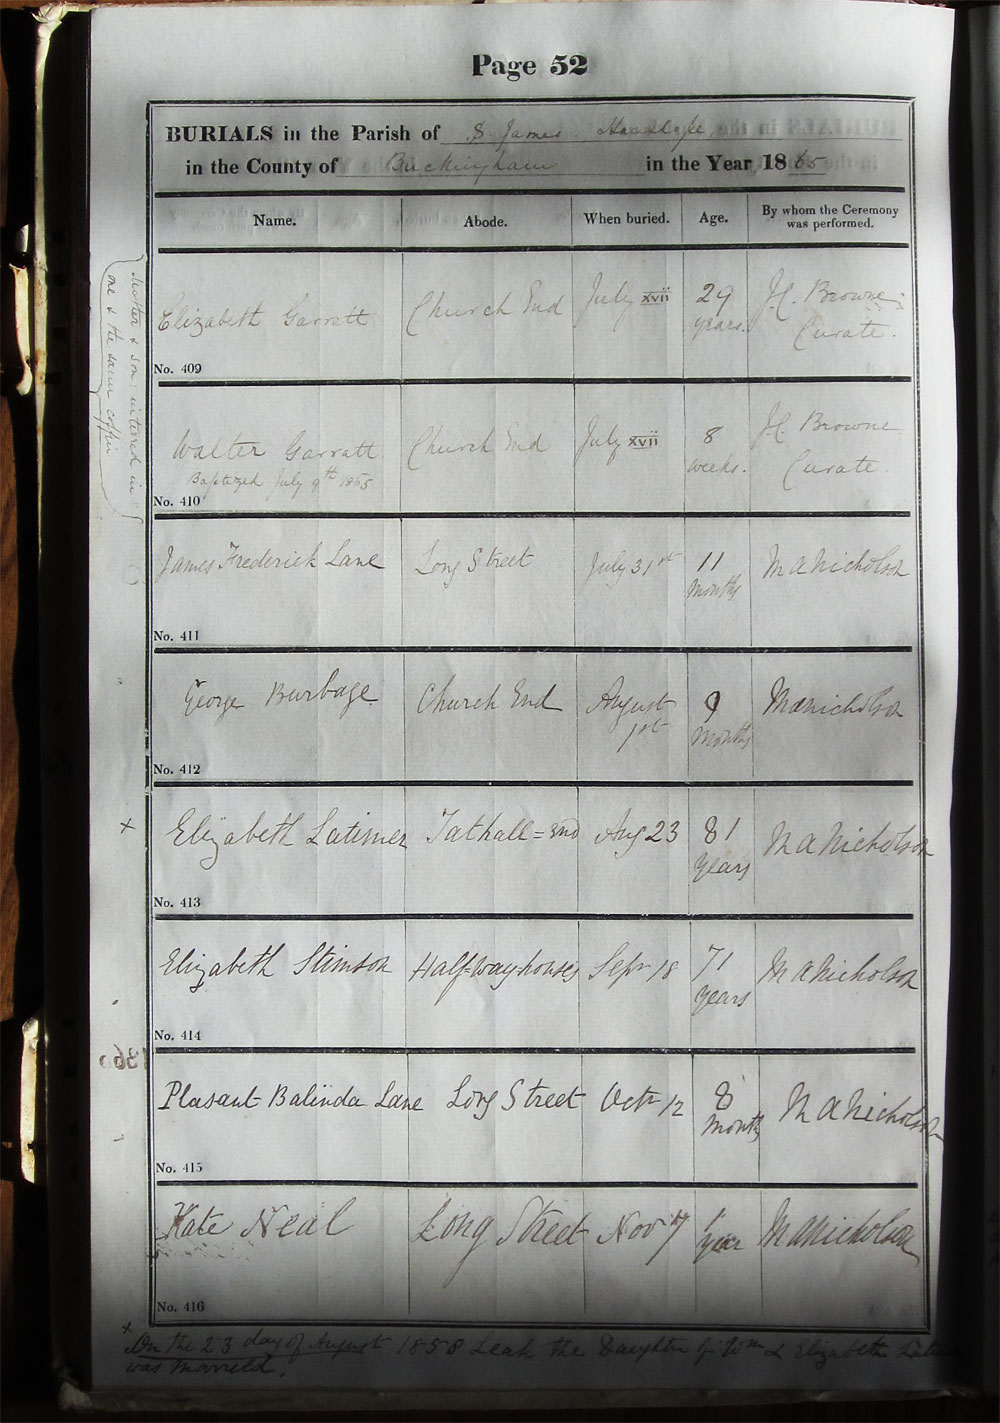 Page 52
BURIALS in the Parish of S. James Hanslope
in the County of Buckingham in the Year 1865
Name. Abode. When buried. Age. By whom the Ceremony was performed.
Mother & son interred in
one & the same coffin
Elizabeth Garratt Church End July xvii 29 years. H. Browne Curate.
No. 409
Walter Garratt Church End July xvii 8 weeks. H. Browne Curate.
Baptized July 9th 1865
No. 410
James Frederick Lane Long Street July 31st 11 Months M A Nicholson
No. 411
George Burbage Church End August 1st 9 Months M A Nicholson
No. 412
x Elizabeth Latimer Tathall=End Aug 23 81 years M A Nicholson
No. 413
Elizabeth Stimson Half-way-houses Sepr 18 71 years M A Nicholson
No. 414
Pleasant Balinda Lane Long Street Octr 12 8 Months M A Nicholson
No. 415
Kate Neal Long Street Nov 7 1 year M A Nicholson
No. 416
x On the 23 day of August 1858 Leah the Daughter of Wm & Elizabeth
was Married.